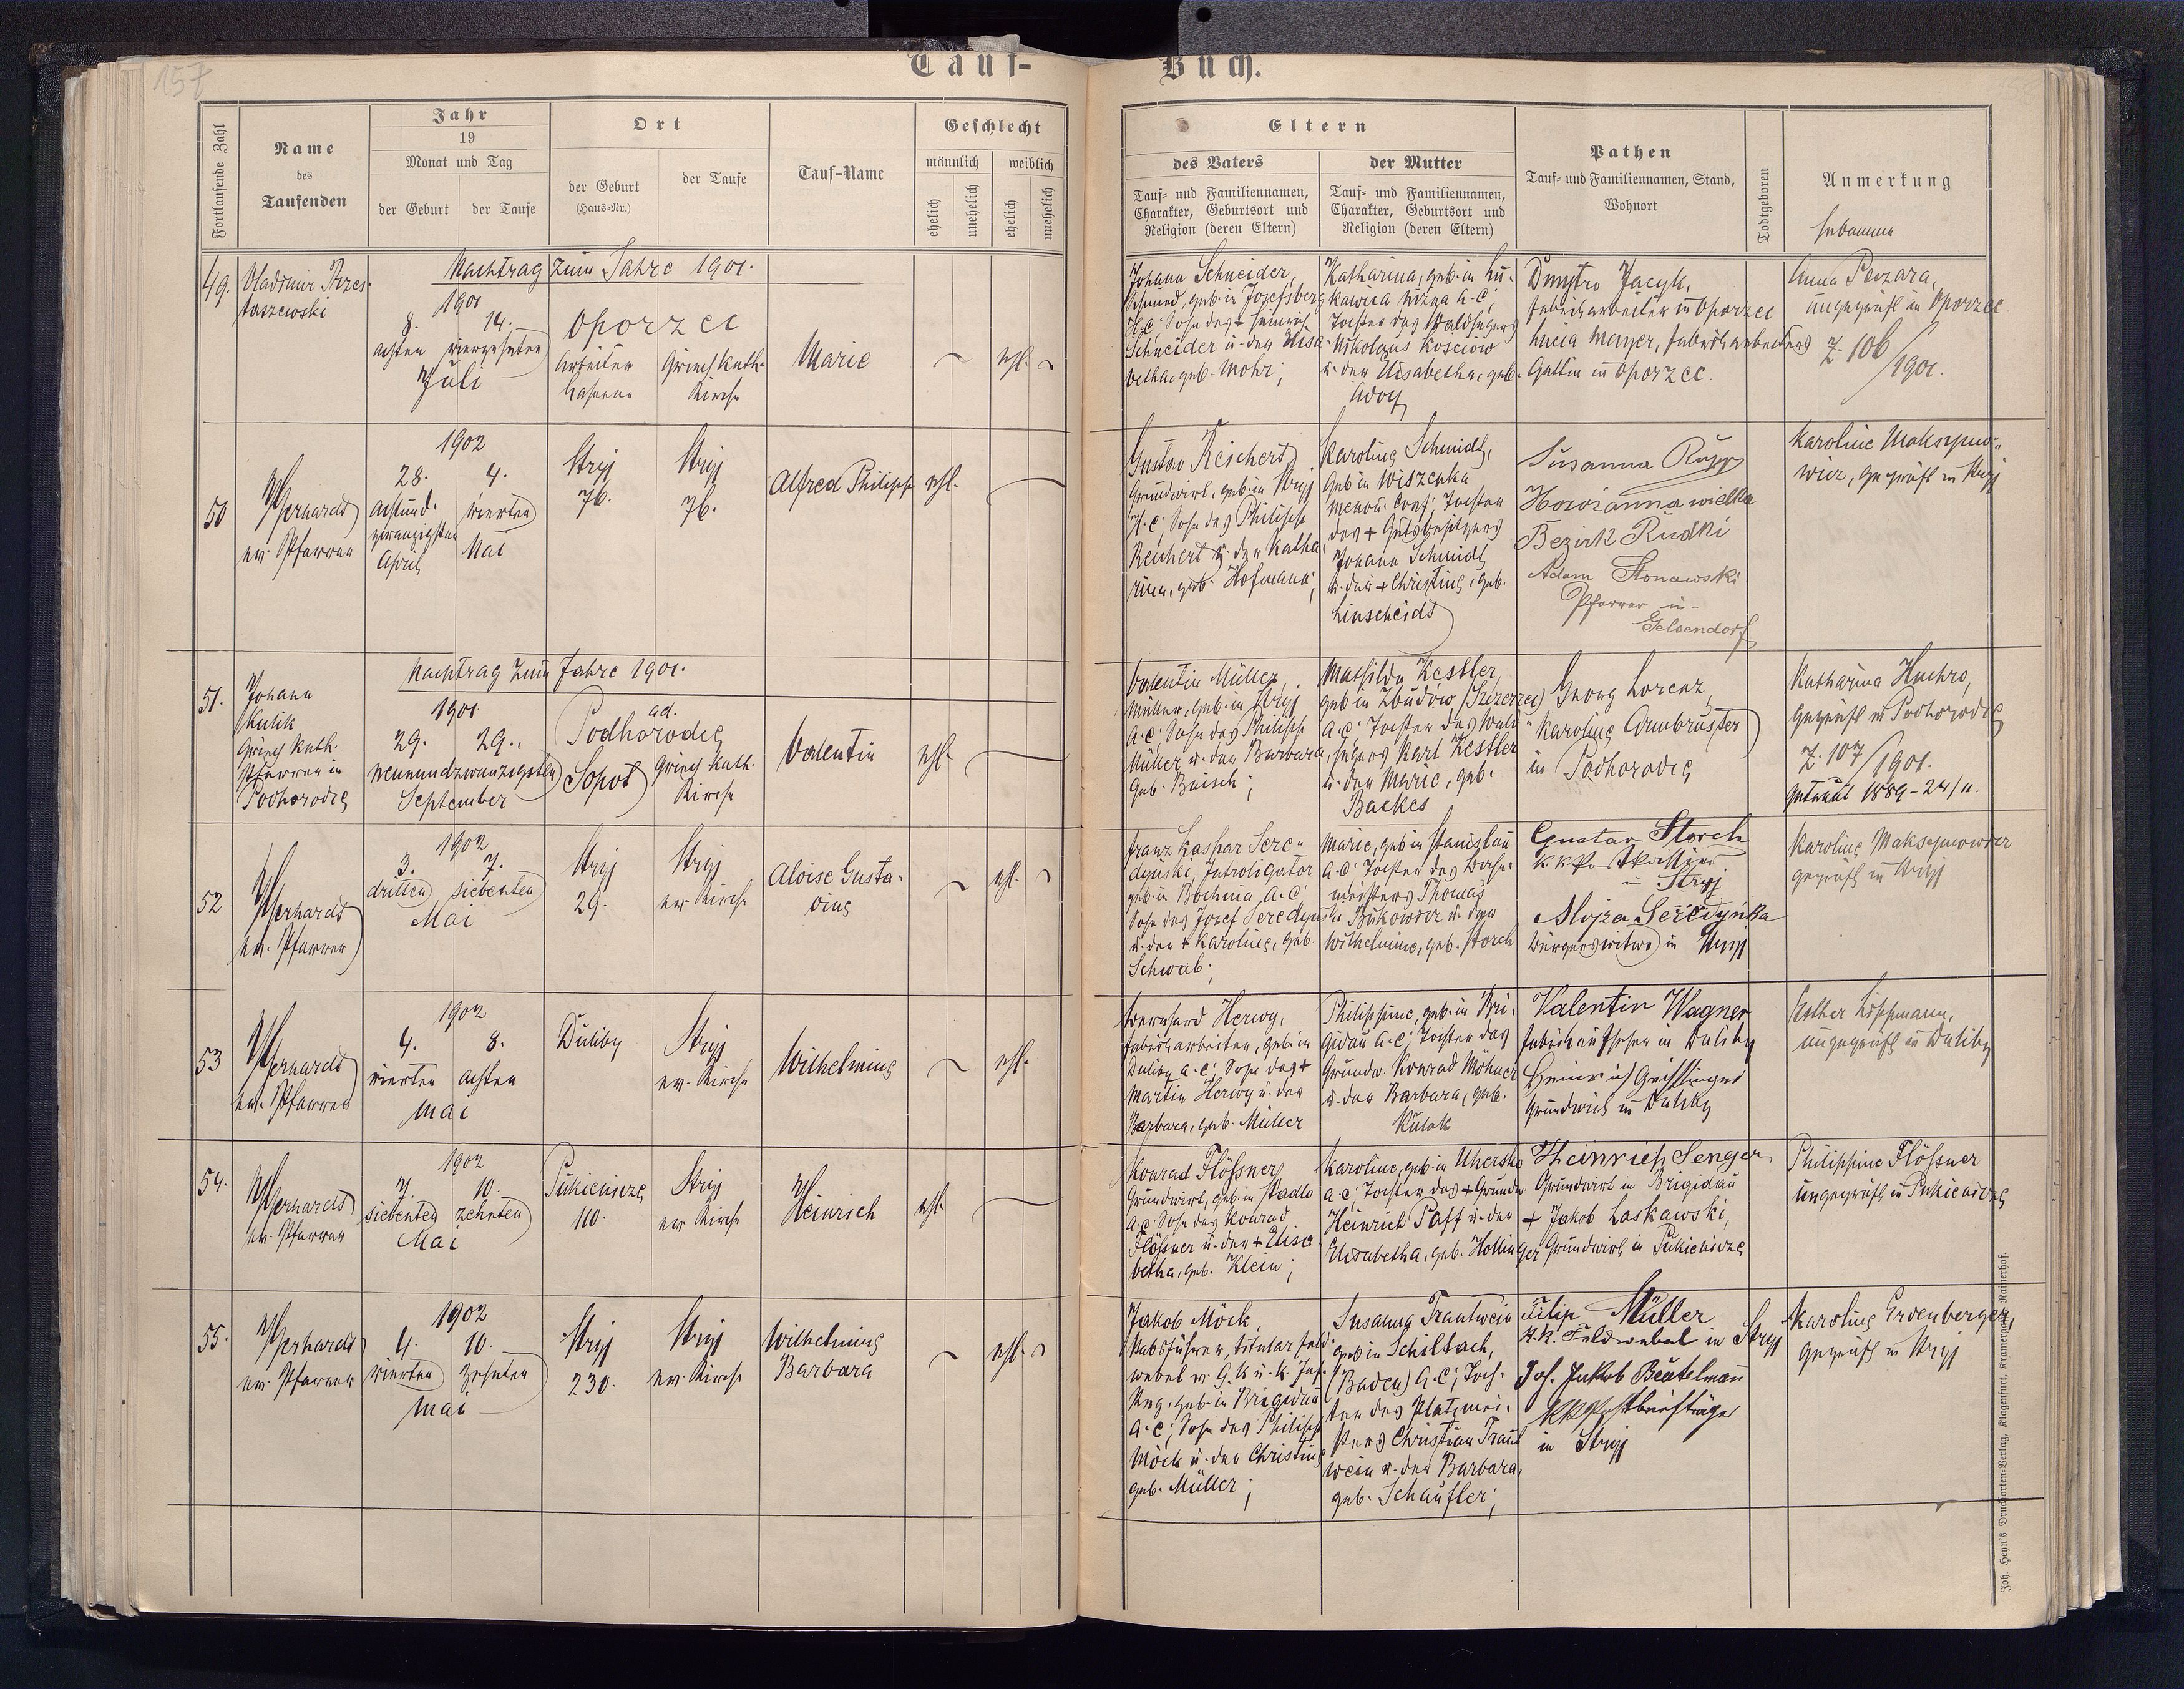 157
Tauf-
Buch.
Fortlaufende Zahl
Name
des
Taufenden
Jahr
19
Monat und Tag
der Geburt
der Taufe
Ort
der Geburt
(Haus-Nr.)
der Taufe
Tauf-Name
Geschlecht
männlich
weiblich
ehelich
unehelich
ehelich
unehelich
Eltern
des Vaters
Tauf- und Familiennamen,
Charakter, Geburtsort und
Religion (deren Eltern)
der Mutter
Tauf- und Familiennamen,
Charakter, Geburtsort und
Religion (deren Eltern)
Pathen
Tauf- und Familiennamen, Stand,
Wohnort
Todtgeboren
Anmerkung
Hebamme
49.
Vladimir
Nachtrag zum Jahre 1901.
1901
8. 14.
achten vierzehnten
Juli
Oporzec
Arbeiter
Griech kath.
Kirche
Marie
ehl.
Johann Schneider,
geb. in Josefsberg
H.C. Sohn des + Heinrich
Schneider u. der Elisa
betha, geb. Mohr;
Katharina, geb. in Lu-
kawica nizna A.C.
Tochter des Waldhegers
Nikolaus Kosciow
u. der Elisabetha, geb.
Adoy
Dmytro Jacyk,
Fabriksarbeiter in Oporzec
Lucia Mayer, Fabriksarbeiters
Gattin in Oporzec.
Anna Pevzara,
ungeprüft in Oporzec.
Z. 106/1901.
50
Gerhardt
ev. Pfarrer
1902
28. 4.
achtund- vierten
zwanzigsten
April Mai
Stryj
76.
Stryj
76.
Alfred Philipp
ehl.
Gustav Reichert
Grundwirt, geb. in Stryj
H.C. Sohn des Philipp
Reichert u. der Katha
rina, geb. Hofmann;
Karoline Schmidt,
geb in Wiszenka
menon. Conf; Tochter
des + Gutsbesitzers
Johann Schmidt
u. der + Christine, geb.
Linscheidt
Susanna Rupp
Horożanna wielka
Bezirk Rudki
Adam Stonawski
Pfarrer in
Gelsendorf
Karoline Maksymo-
wicz, geprüft in Stryj
51.
Johann
Kulik
Griech kath.
Pfarrer in
Podhorodce
Nachtrag zum Jahre 1901.
1901
29. 29.
neunundzwanzigsten
September
ad.
Podhorodce
Sopot
Griech kath.
Kirche
Valentin
ehl.
Valentin Müller,
Müller, geb. in Stryj
A.C. Sohn des Philipp
Müller u. der Barbara,
geb. Baisch;
Mathilde Kessler,
geb in Zbudow (Szczerzec)
A.C. Tochter des Wald-
hegers Karl Kessler
u. der Marie, geb.
Backes
Georg Lorenz,
Karoline Armbruster
in Podhorodce
Katharina Huchro,
geprüft in Podhorodce
Z. 107/1901.
getraut 1889-24/11.
52
Gerhardt
ev. Pfarrer
1902
3. 7.
dritten siebenten
Mai
Stryj
29.
Stryj
ev Kirche
Aloise Gusta-
vine
ehl.
Franz Kaspar Sere-
dynski, Introligator
geb in Bochnia, A.C
Sohn des Josef Seredynski
u. der + Karoline, geb.
Schwab;
Marie, geb in Stanislau
A.C. Tochter des
meisters Thomas
Bukowicz u. der
Wilhelmine, geb. Storch
Gustav Storch
in Stryj
Alojza Seredyńska
Bürgerswitwe in Stryj
Karoline Maksymowicz
geprüft in Stryj
53
Gerhardt
ev. Pfarrer
1902
4. 8.
vierten achten
Mai
Duliby
Stryj
ev. Kirche
Wilhelmine
ehl.
Bernhard Herwy,
Fabriksarbeiter, geb in
Duliby A.C; Sohn des +
Martin Herwy u. der
Barbara, geb. Müller
Philippine, geb. in Bri-
gidau A.C; Tochter des
Grundw. Konrad Möhner
u. der Barbara, geb.
Kulak
Valentin Wagner
Fabriksaufseher in Duliby
Heinrich
Grundwirt in Duliby
Esther Lippmann,
ungeprüft in Duliby
54.
Gerhardt
ev. Pfarrer
1902
7. 10.
siebenten zehnten
Mai
Pukienicze
110.
Stryj
ev Kirche
Heinrich
ehl.
Konrad Flößner
Grundwirt, geb. in Stadlo
A.C. Sohn des Konrad
Flößner u. der + Elisa
betha, geb. Klein;
Karoline, geb. in Uhersko
A.C; Tochter des + Grundw.
Heinrich Paff u. der
Elisabetha, geb. Hollinger
Heinrich Senger
Grundwirt in Brigidau
+ Jakob Laskawski,
Grundwirt in Pukienicze
Philippine Flößner
ungeprüft in Pukienicze
55.
Gerhardt
ev. Pfarrer
1902
4. 10.
vierten zehnten
Mai
Stryj
230.
Stryj
ev. Kirche
Wilhelmine
Barbara
ehl.
Jakob Möck,
Stabsführer, titular Feld
webel
geb. in Brigidau
A.C; Sohn des Philipp
Möck u. der Christine
geb. Müller;
Susanna Trautwein
geb in Schiltach,
(Baden) A.C; Toch-
ter des Platzmei-
sters Christian Traut
wein u. der Barbara,
geb. Schaufler;
Filip Müller
k.k. Feldwebel in Stryj
Joh. Jakob Beutelmann
KK Postbriefträger
in Stryj
Karoline Ervenberger,
geprüft in Stryj
Joh. Heyn's Drucksorten-Verlag, Klagenfurt, Kramergasse, Rainerhof.